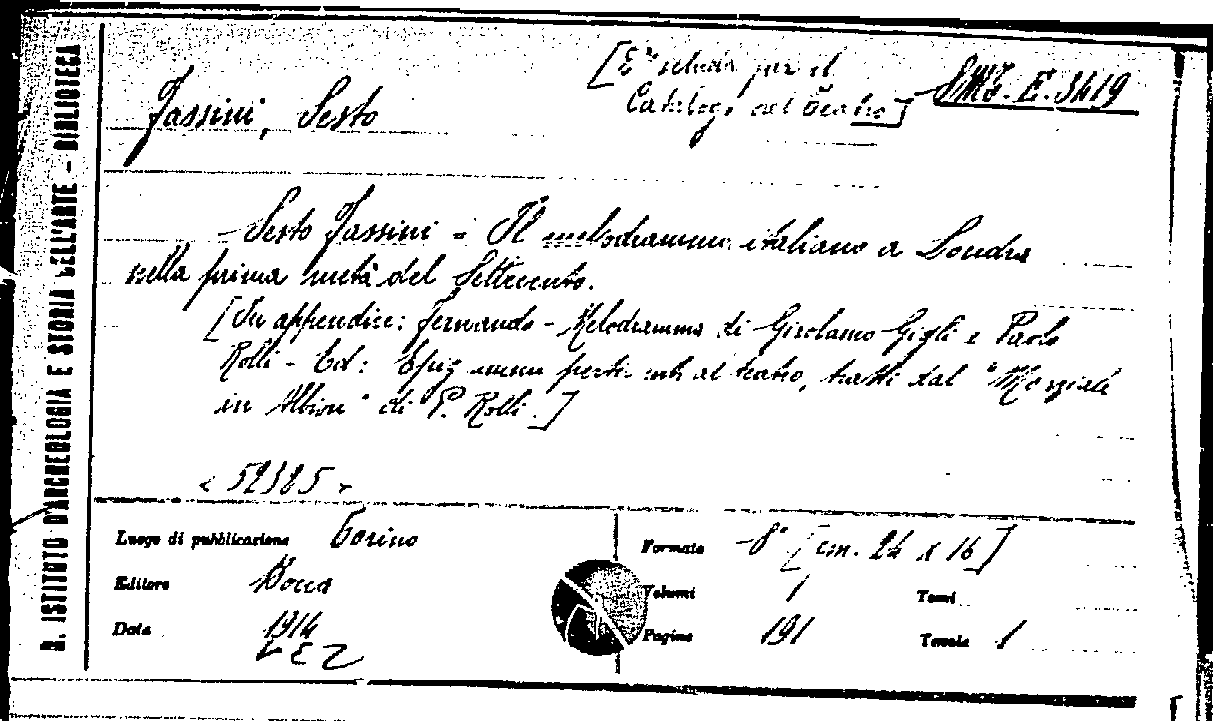 R. ISTITUTO D'ARCHEOLOGIA E STORIA DELL'ARTE - BIBLIOTECA
[È scheda per il
Catalogo del Teatro]
Fassini, Sesto
Sesto Fassini - Il melodramma italiano a Londra
nella prima metà del Settecento.
[In appendice: Fernando - Melodramma di Girolamo Gigli e Paolo
Rolli - Ed: Epigrammi pertinenti al teatro, tratti dal "Marziale
in Albion" di P. Rolli.]
<52385>
Luogo di pubblicazione Torino
Editore Bocca
Data 1914
Formato 8° [cm. 24 x 16]
Volumi 1 Tomi
Pagine 191 Tavole 1